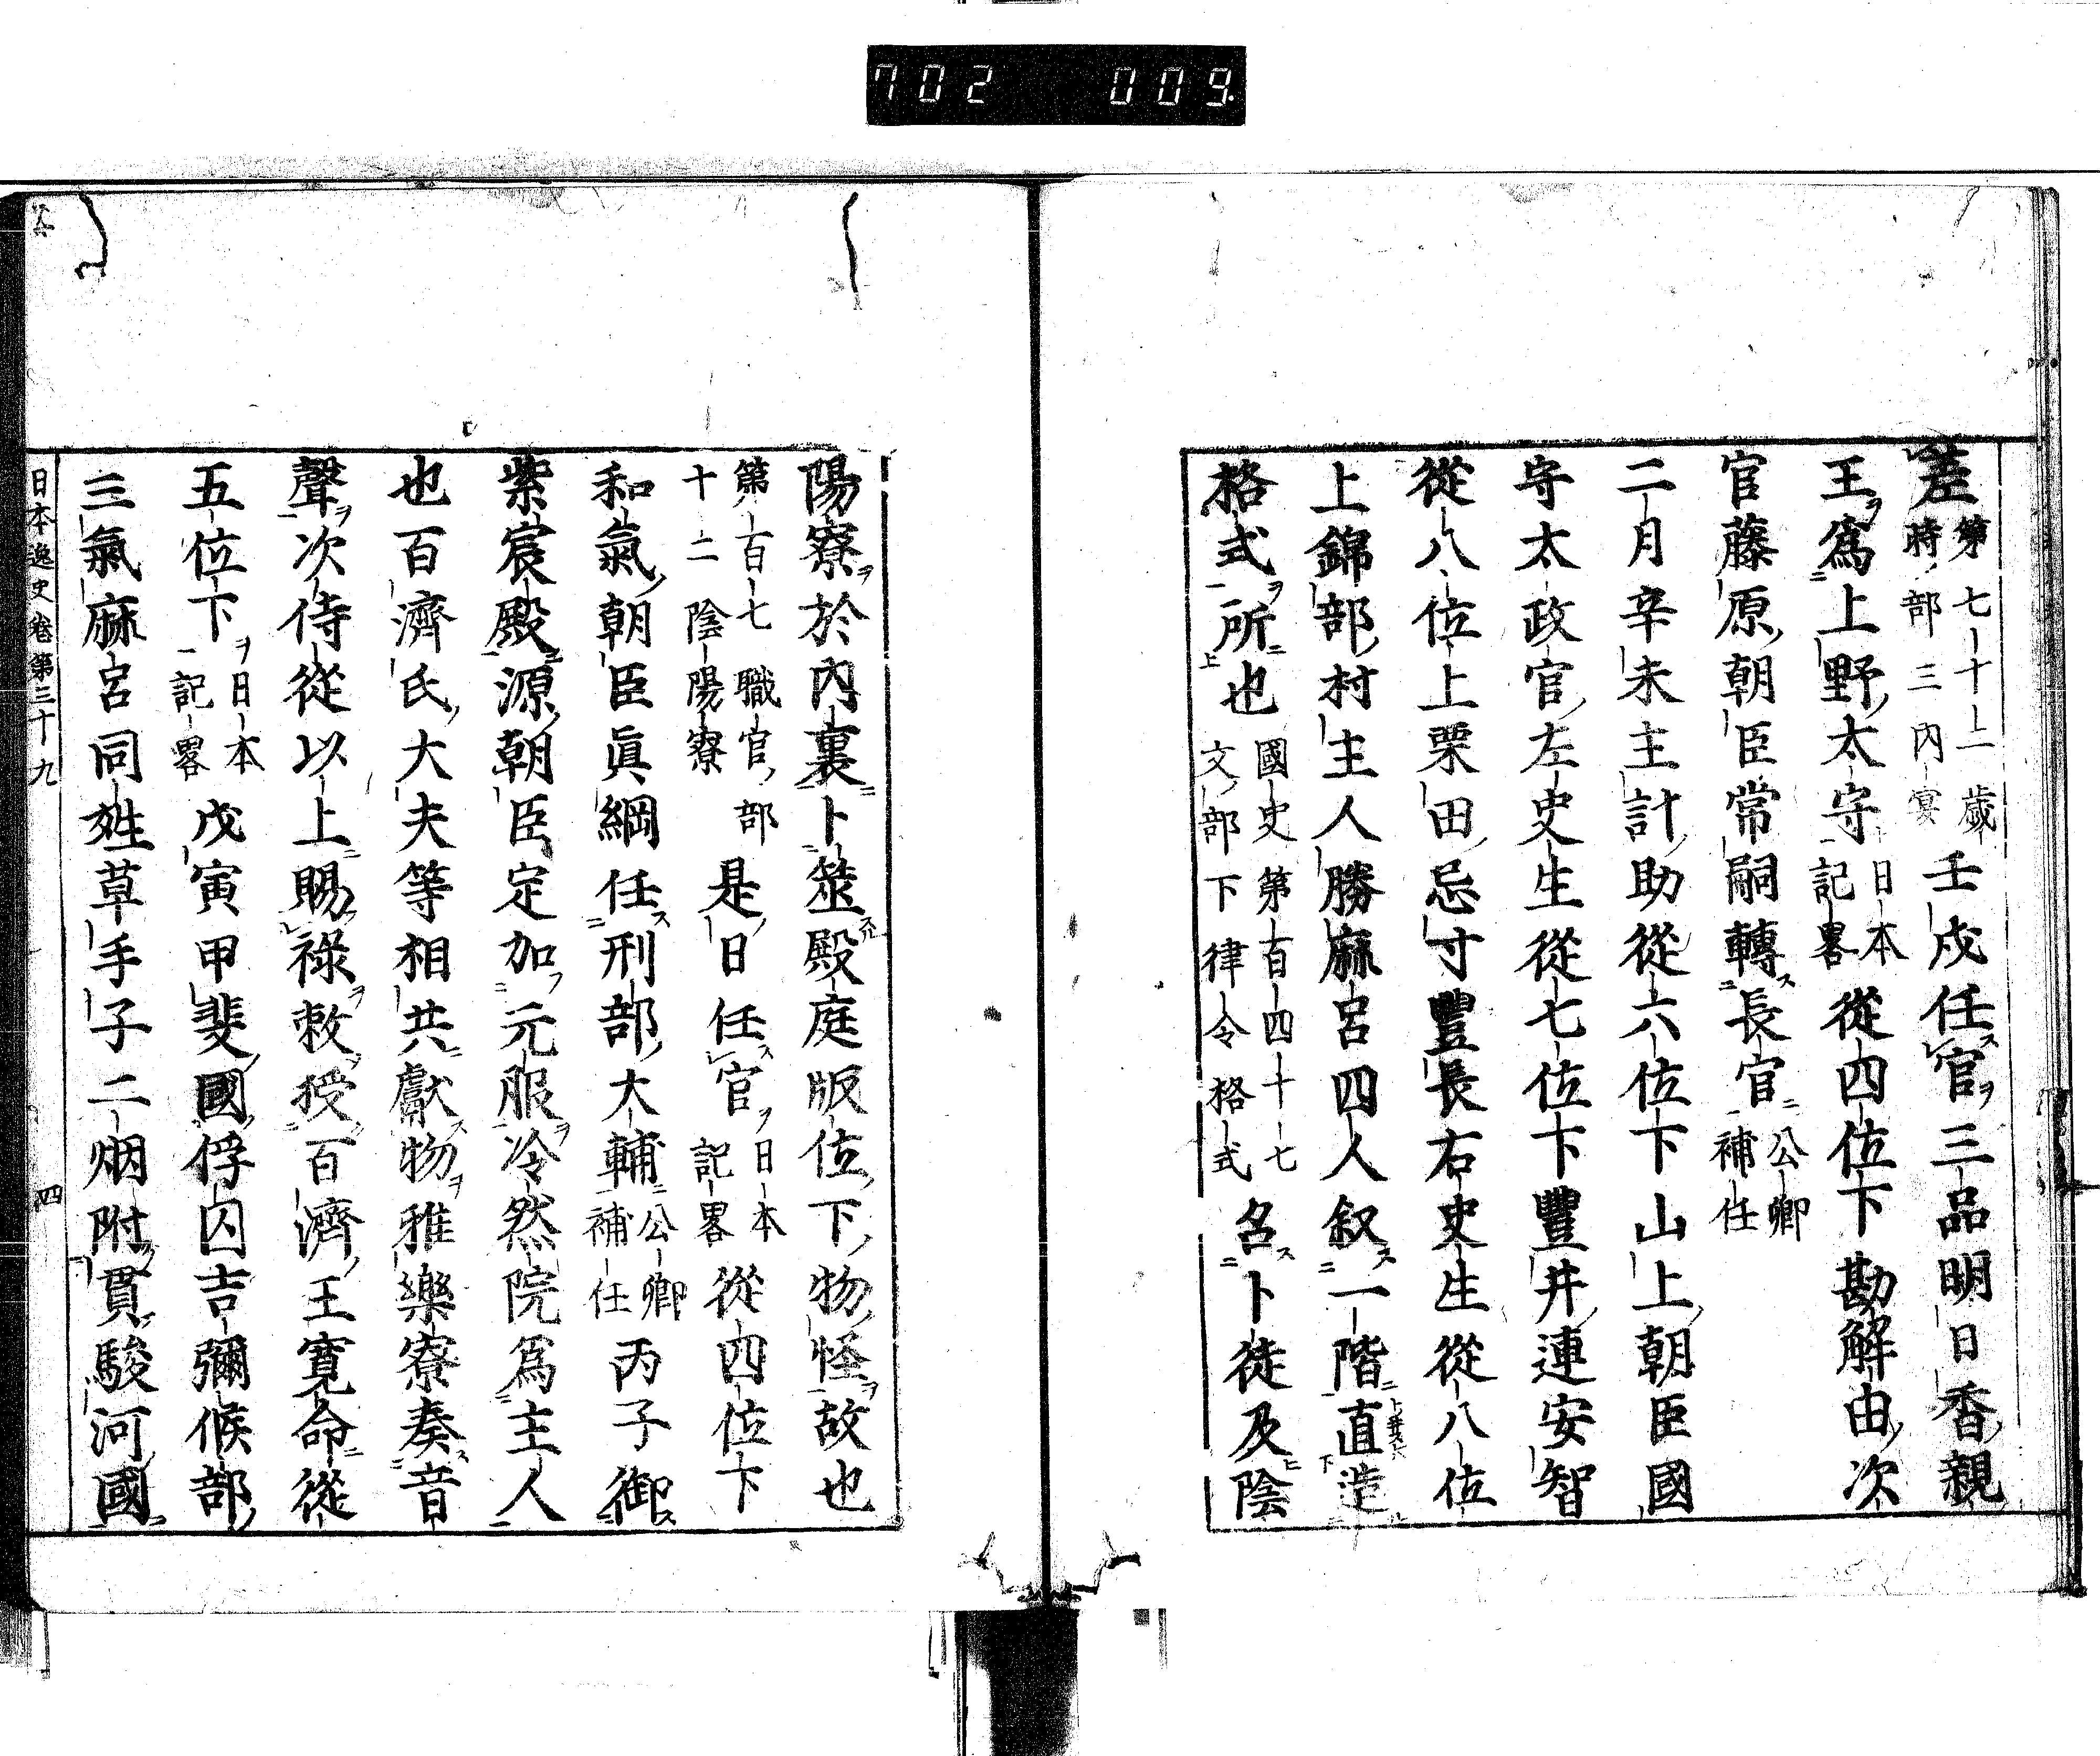 702 009
差第七十二歲時部三內宴壬戌任官三品明日香親
王爲上野太守日本記畧從四位下勘解由次
官藤原朝臣常嗣轉長官公卿補任
二月辛未主計助從六位下山上朝臣國
守太政官左史生從七位下豐井連安智
從八位上栗田忌寸豐長右史生從八位
上錦部村主人勝麻呂四人叙一階直造
格式所也國史第百四十七文部下律令格式召卜徒及陰
陽寮於內裏卜筮殿庭版位下物怪故也
第百七職官部十二陰陽寮是日任官日本記畧從四位下
和氣朝臣眞綱任刑部大輔公卿補任丙子御
紫宸殿源朝臣定加元服冷然院爲主人
也百濟氏大夫等相共獻物雅樂寮奏音
聲次侍從以上賜祿敕授百濟王寬命從
五位下日本記畧戊寅甲斐國俘囚吉彌候部
三氣麻呂同姓草手子二烟附貫駿河國
日本逸史卷第三十九 四